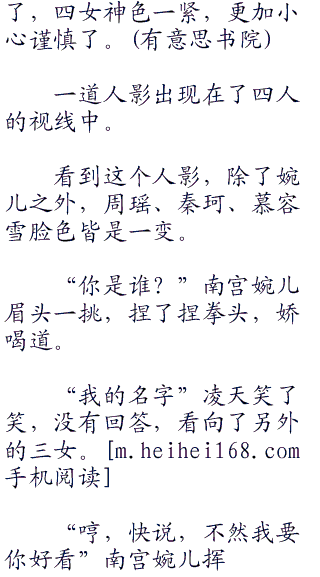 了，四女神色一紧，更加小
心谨慎了。(有意思书院)
一道人影出现在了四人
的视线中。
看到这个人影，除了婉
儿之外，周瑶、秦珂、慕容
雪脸色皆是一变。
“你是谁？”南宫婉儿
眉头一挑，捏了捏拳头，娇
喝道。
“我的名字”凌天笑了
笑，没有回答，看向了另外
的三女。[m.heihei168.com
手机阅读]
“哼，快说，不然我要
你好看”南宫婉儿挥